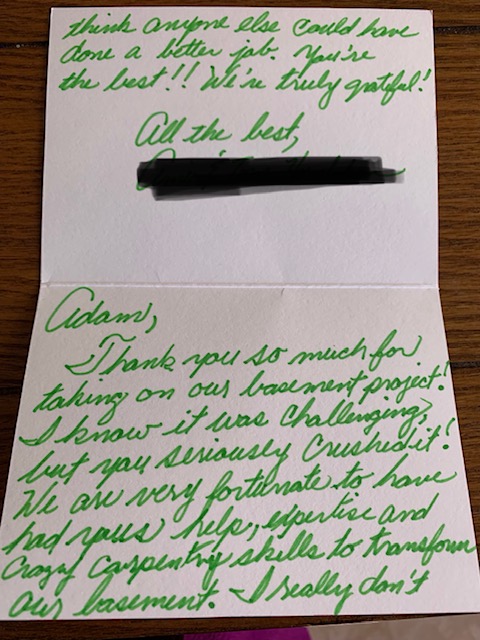 Adam,
Thank you so much for
taking on our basement project!
I know it was challenging,
but you seriously crushed it!
We are very fortunate to have
had your help, expertise and
crazy carpentry skills to transform
our basement. I really don't
think anyone else could have
done a better job. You're
the best!! We're truly grateful!
All the best,